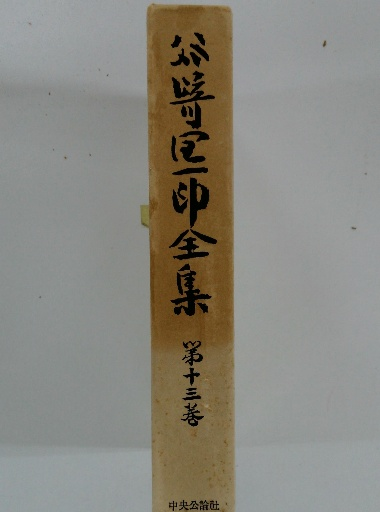 谷崎潤一郎全集
第十三巻
中央公論社